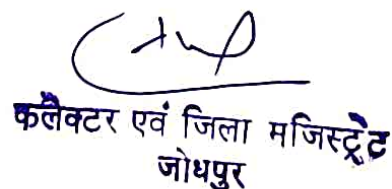 कलैक्टर एवं जिला मजिस्ट्रेट
जोधपुर